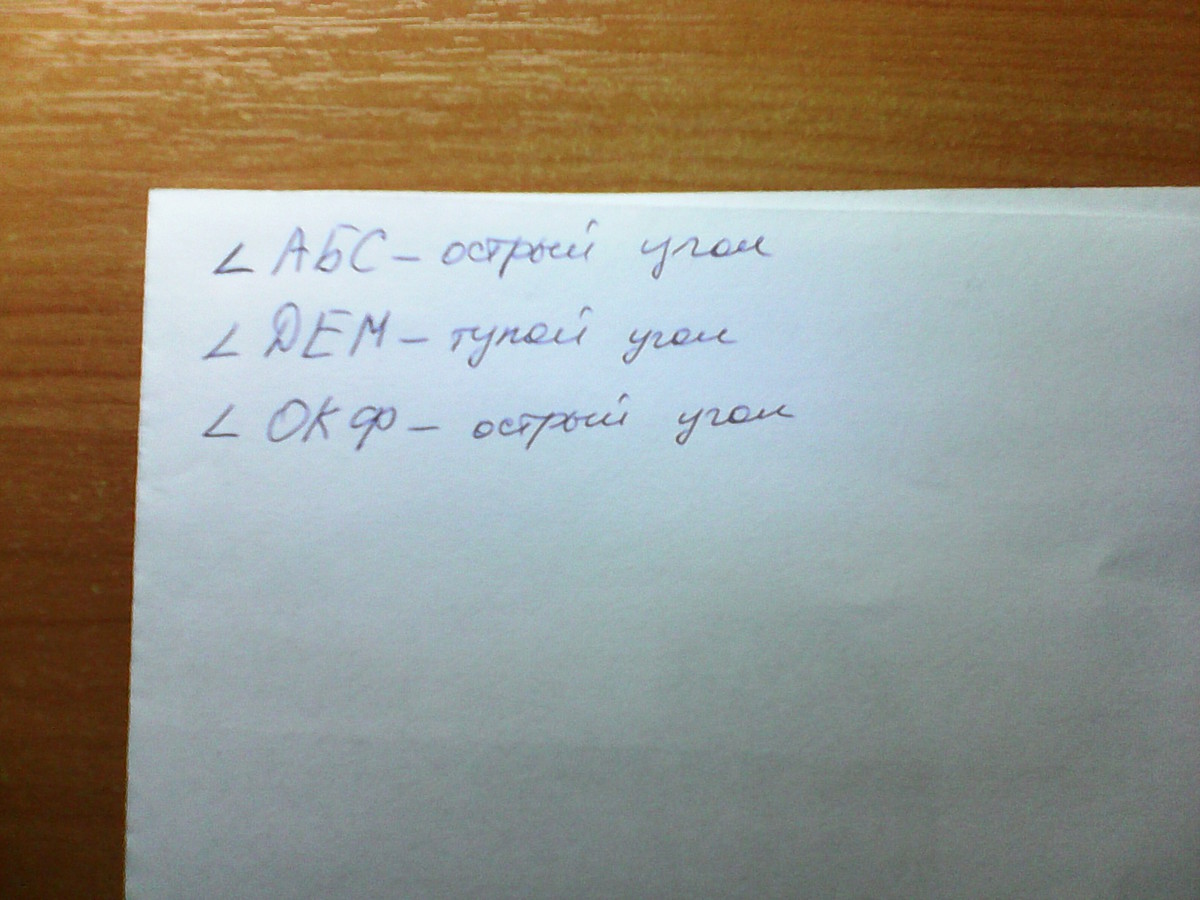 ∠ АБС - острый угол
∠ DЕМ - тупой угол
∠ ОКФ - острый угол